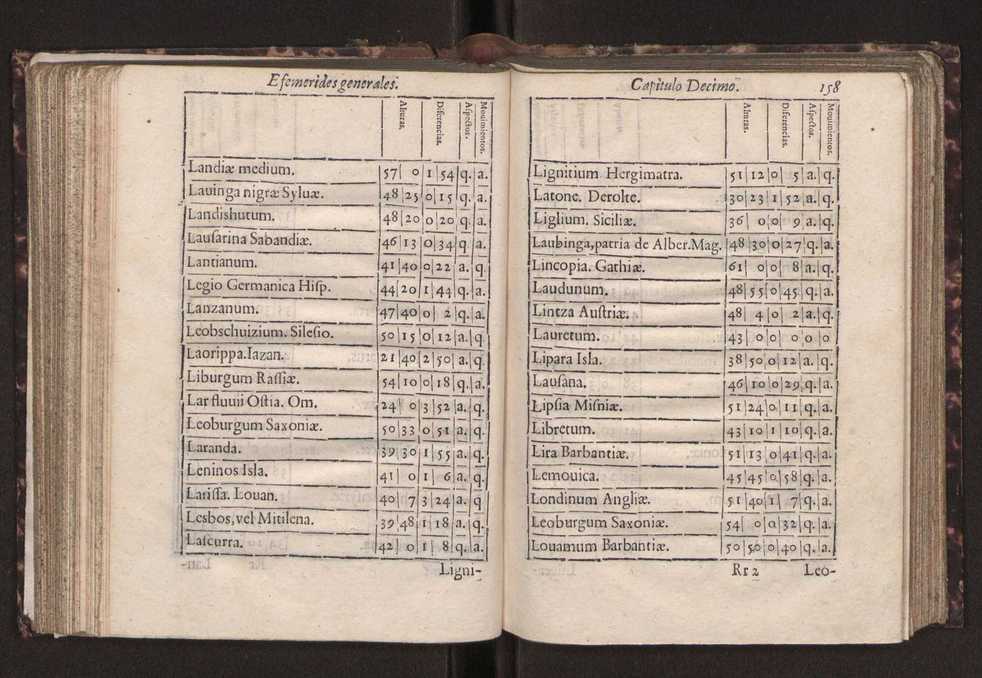 Efemerides generales.
Alturas. Diferencias. Aspectos. Mouimientos.
Landiæ medium. 57 0 1 54 q. a.
Lauinga nigræ Syluæ. 48 25 0 15 q. a.
Landishutum. 48 20 0 20 q. a.
Lausarina Sabandiæ. 46 13 0 34 q. a.
Lantianum. 41 40 0 22 a. q.
Legio Germanica Hisp. 44 20 1 44 q. a.
Lanzanum. 47 40 0 2 q. a.
Leobschuizium. Silesio. 50 15 0 12 a. q
Laorippa. Iazan. 21 40 2 50 a. q.
Liburgum Rassiæ. 54 10 0 18 q. a.
Lar fluuii Ostia. Om. 24 0 3 52 a. q.
Leoburgum Saxoniæ. 50 33 0 51 a. q.
Laranda. 39 30 1 55 a. q.
Leninos Isla. 41 0 1 6 a. q.
Larissa. Louan. 40 7 3 24 a. q
Lesbos, vel Mitilena. 39 48 1 18 a. q.
Lascurra. 42 0 1 8 q. a.
Ligni-
Capitulo Decimo. 158
Alturas. Diferencias. Aspectos. Mouimientos.
Lignitium Hergimatra. 51 12 0 5 a. q.
Latone. Derolte. 30 23 1 52 a. q.
Liglium. Siciliæ. 36 0 0 9 a. q.
Laubinga, patria de Alber. Mag. 48 30 0 27 q. a.
Lincopia. Gathiæ. 61 0 0 8 a. q.
Laudunum. 48 55 0 45 q. a.
Lintza Austriæ. 48 4 0 2 a. q.
Lauretum. 43 0 0 0 0
Lipara Isla. 38 50 0 12 a. q.
Lausana. 46 10 0 29 q. a.
Lipsia Misniæ. 51 24 0 11 q. a.
Libretum. 43 10 1 10 q. a.
Lira Barbantiæ. 51 13 0 41 q. a.
Lemouica. 45 45 0 58 q. a.
Londinum Angliæ. 51 40 1 7 q. a.
Leoburgum Saxoniæ. 54 0 0 32 q. a.
Louamum Barbantiæ. 50 50 0 40 q. a.
Rr 2 Leo-